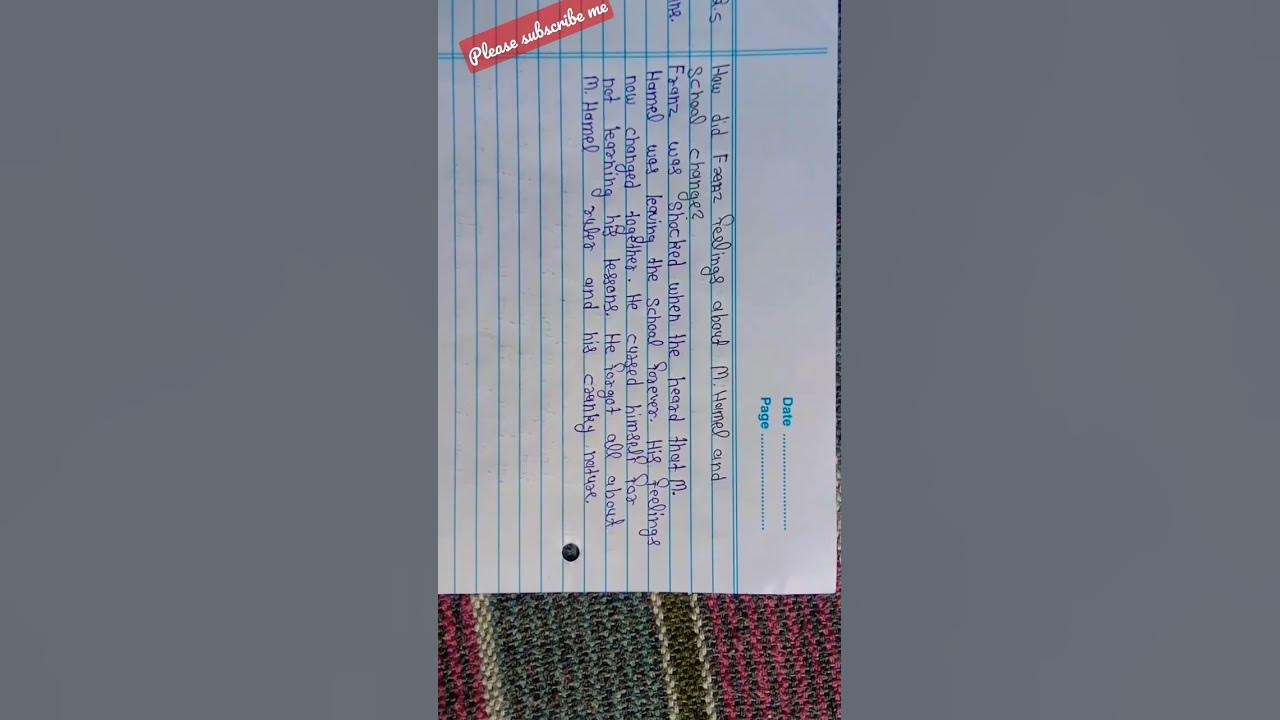 Please subscribe me
Date
Page
Q.5 How did Franz feelings about M. Hamel and
School change?
Ans. Franz was shocked when the heard that M.
Hamel was leaving the School forever. His feelings
now changed together. He cursed himself for
not learning his lessons. He forgot all about
M. Hamel ruler and his cranky nature.